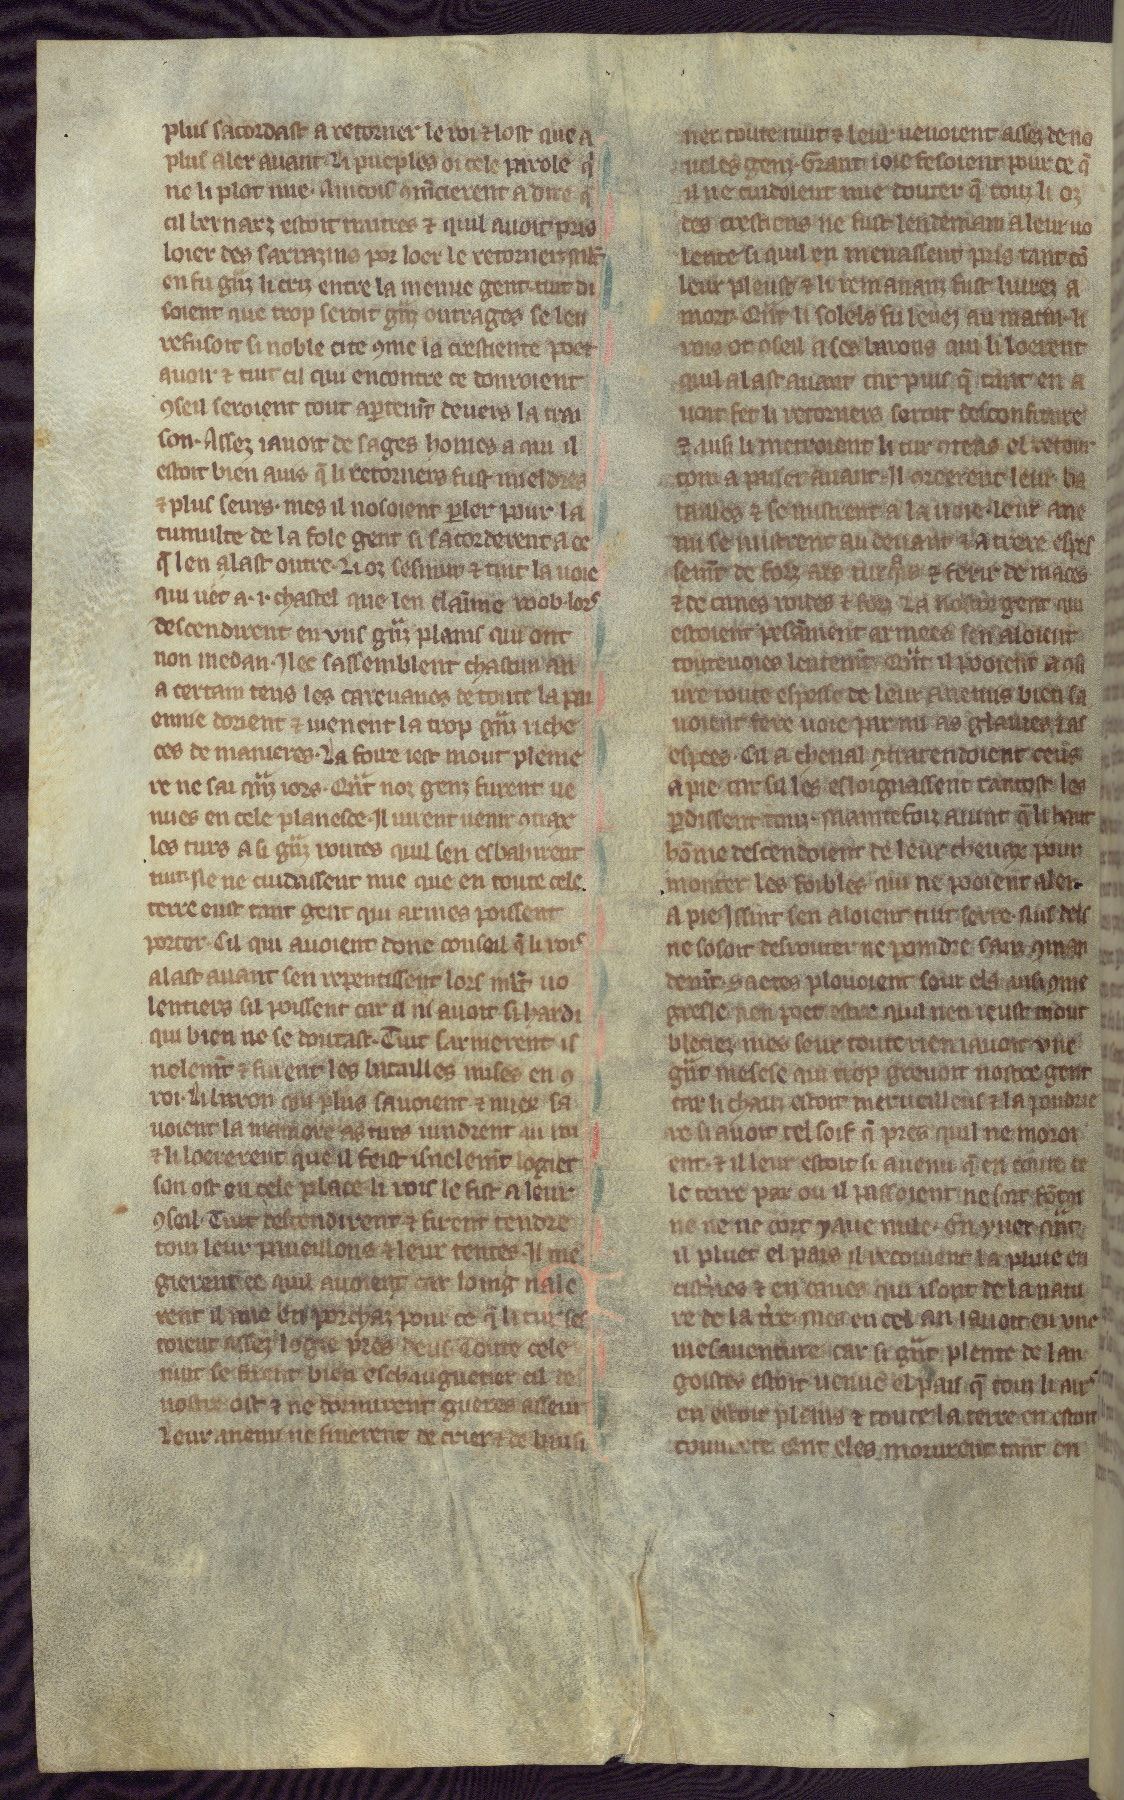 plus sacordast a retorner le roi ⁊ lost que a
plus aler auant. Li pueples oi cele parole q̃
ne li plot mie. Aincois ꝯm̃cierent a dire q̃
cil bernarz estoit traitres ⁊ quil auoit pris
loier des sarrazins por loer le retorner. ml̃t
en fu gñz li criz entre la menue gent. tuit di
soient que trop seroit gñz outrages se len
refusoit si noble cite ꝯme la crestiente poet
auoir ⁊ tuit cil qui encontre ce donroient
ꝯseil seroient tout aꝑtem̃t deuers la trai
son. Assez iauoit de sages homes a qui il
estoit bien auis q̃ li retorners fust mieldres
⁊ plus seurs. mes il nosoient ꝑler pour la
tumulte de la fole gent si sacorderent a ce
q̃ len alast outre. Li oz sesmut ⁊ tint la uoie
qui uet a .i. chastel que len claime roob. lors
descendirent en vns gñz plains qui ont
non medan. Ilec sassemblent chascun an
a certain tens les careuanes de toute la pai
ennie dorient ⁊ uienent la trop gñz riche
ces de manieres. La foire iest mout pleme
re ne sai qñz iors. Qñt noz genz furent ue
nues en cele planesce. Il uirent uenir ꝯtrax
les turs a si gñz routes quil sen esbahirent
tuit. Ne ne cuidassent mie que en toute cele
terre eust tant gent qui armes poissent
porter. Cil qui auoient done conseil q̃ li rois
alast auant sen repentissent lors ml̃t uo
lentiers sil poissent car il ni auoit si hardi
qui bien ne se doutast. Tuit sarmerent is
nelem̃t ⁊ furent les batailles mises en ꝯ
roi. Li baron qui plus sauoient ⁊ miex sa
uoient la maniere as turs uindrent au roi
⁊ li loererent que il feist isnelem̃t logier
son ost en cele place li rois le fist a leur
ꝯseil. Tuit descendirent ⁊ firent tendre
touz leur paueillons ⁊ leur tentes. Il me
gierent ce quil auoient car loing nale
rent il mie en porchaz pour ce q̃ li tur ses
toient assez logie pres deus. Toute cele
nuit se firent bien eschauguetier cil de
nostre ost ⁊ ne dormirent gueres asseur
Leur anemi ne finerent de crier ⁊ de buisi
ner toute nuit ⁊ leur uenoient assez de no
ueles genz. Grant ioie fesoient pour ce q̃
il ne cuidoient mie douter q̃ touz li oz
des crestiens ne fust lendemain a leur uo
lente si quil en menassent pris tant cõ
leur pleust ⁊ li remananz fust liurez a
mort. Qñt li solels fu leuez au matin. li
rois ot ꝯseil a ses barons qui li loerent
quil alast auant car puis q̃ tant en a
uoit fet li retorners seroit desconfiture
⁊ ausi li metroient li tur ꝯtens el retour
com a passer auant. Il orderent leur ba
tailles ⁊ se mistrent a la uoie. leur ane
mi se mistrent au deuant ⁊ a trere espes
sem̃t de forz ars turq̃is ⁊ ferir de maces
⁊ de canes roides ⁊ forz. La nostre gent qui
estoient pesãment armees sen aloient
touteuoies lentem̃t. Qñt il pooient a ꝯsi
ure route espesse de leur anemis bien sa
uoient fere uoie parmi as glaiues ⁊ as
espees. Cil a cheual ꝯtratendoient ceus
a pie. car sil les esloignassent tantost les
ꝑdissent touz. Maintefoiz auint q̃ li haut
hõme descendoient de leur cheuax pour
monter les foibles qui ne pooient aler
a pie. Issint sen aloient tuit serre. nus dels
ne sosoit desrouter ne poindre sanz ꝯman
dem̃t. Saetes plouoient sour els ausi ꝯme
gresle. nen poet estre quil nen i eust mout
bleciez mes sour toute rien iauoit vne
gñt mesese qui trop greuoit nostre gent
car li chauz estoit merueilleus ⁊ la poudrie
re si auoit tel soif q̃ pres quil ne moroi
ent. ⁊ il leur estoit si auenu q̃ en toute ce
le terre par ou il passoient ne sort fõtai
ne ne ne cort yaue nule. En yuer qñt
il pluet el pais il recoiuent la pluie en
cist̾nes ⁊ en caues qui isont de la natu
re de la t̾re. Mes en cel an iauoit eu vne
mesauenture car si gñt plente de lan
goustes estoit uenue el pais q̃ touz li airs
en estoit plains ⁊ toute la terre en estoit
couuerte dont eles morurent tant en